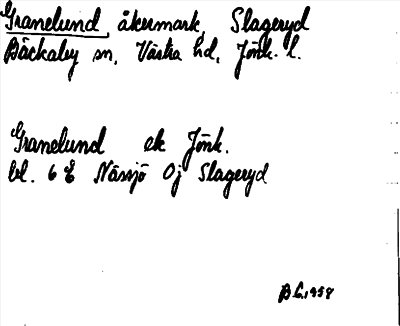 Granelund, åkermark, Slageryd
Bäckaby sn, Västra hd, Jönk. l.
Granelund ek Jönk.
bl. 6 E Nässjö 0j Slageryd
B G. 1958